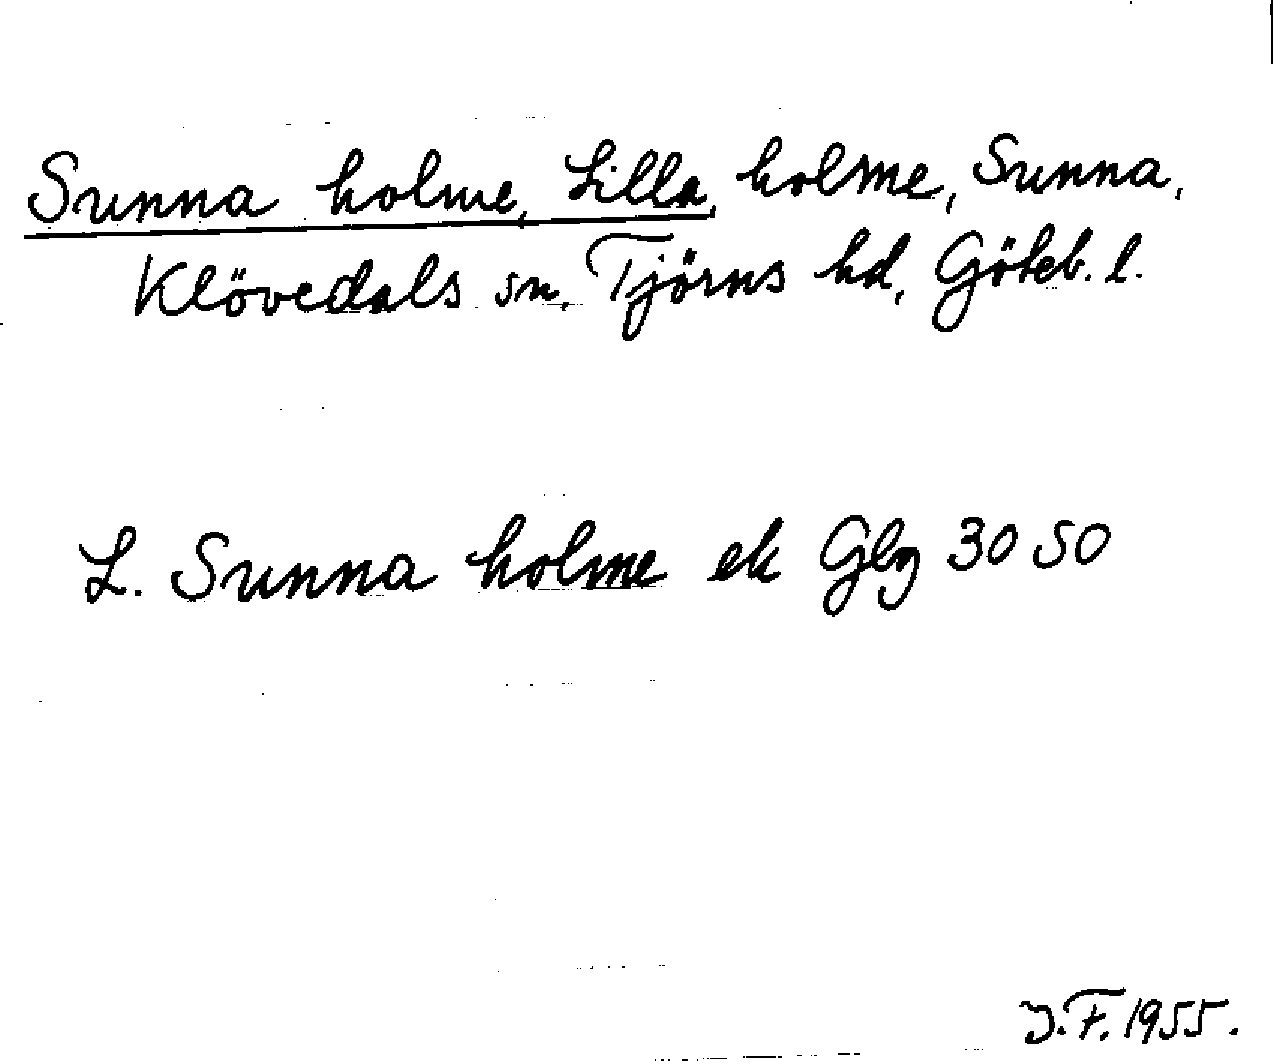 Sunna holme, Lilla, holme, Sunna,
Klövedals sn, Tjörns hd, Göteb. l.
L. Sunna holme ek Gbg 30 50
J.F. 1955.